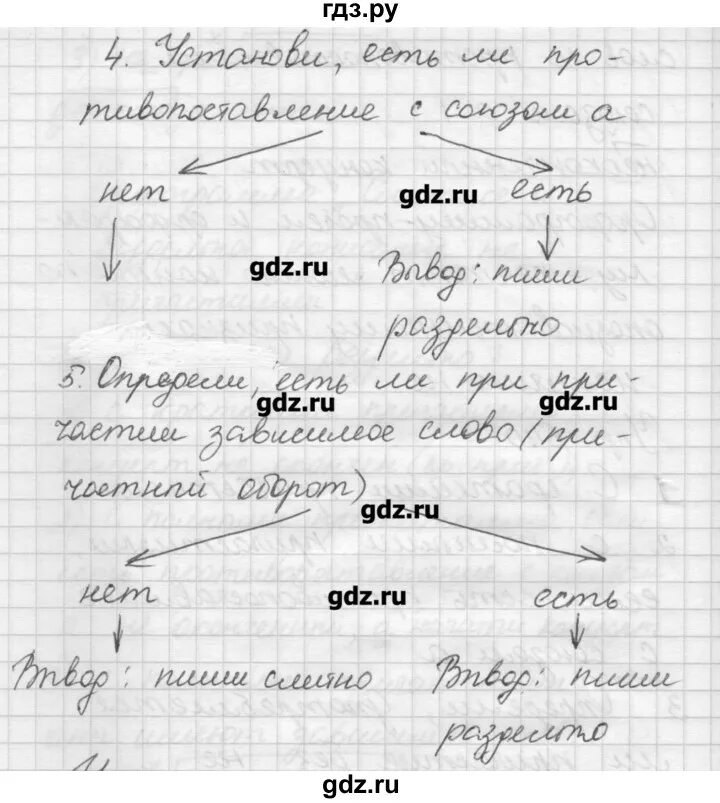 гдз.ру
4. Установи, есть ли про-
тивопоставление с союзом а
нет
gdz.ru
есть
gdz.ru
Вывод: пиши
раздельно
5. Определи, есть ли при при-
gdz.ru
gdz.ru
частии зависимое слово (при-
частный оборот)
gdz.ru
нет
gdz.ru
есть
Вывод: пиши слитно
Вывод: пиши
раздельно
gdz.ru